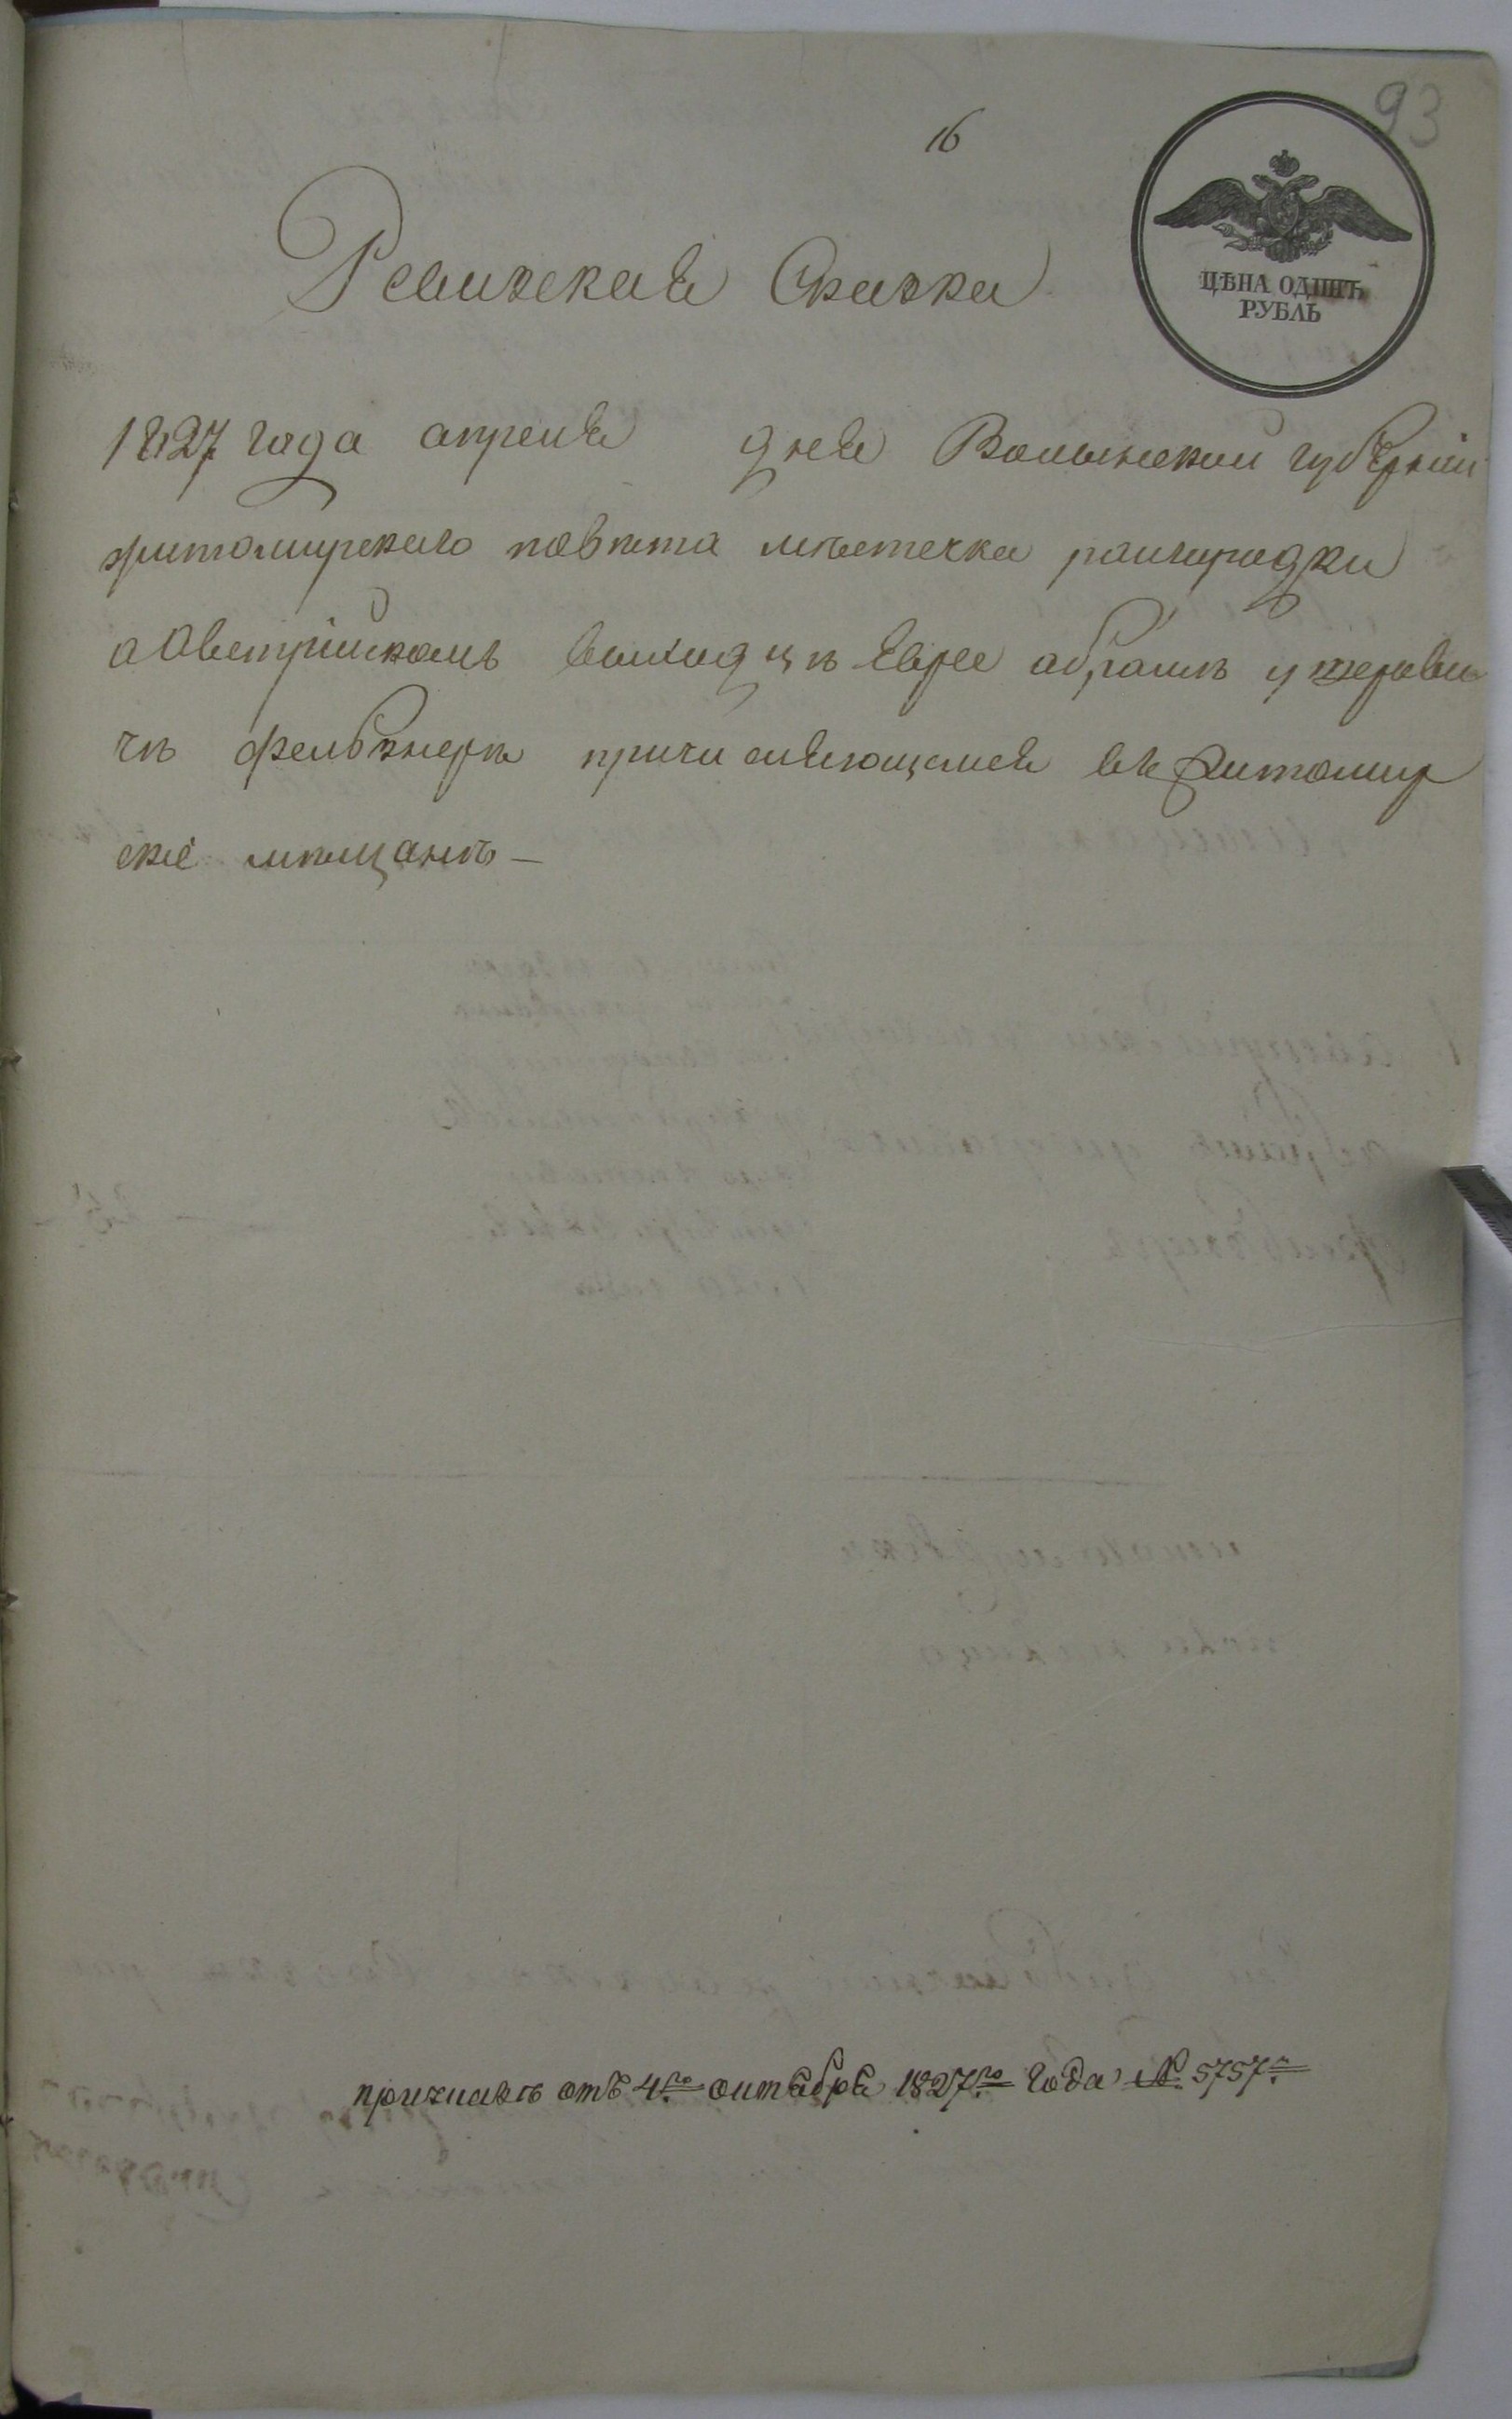 93
16
ЦѢНА ОДИНЪ
РУБЛЬ
Ревизская Сказка
1827 года апреля дня Волынской губернiи
житомирскаго повѣта мѣстечка раигродки
о Австрiйскомъ выходцѣ Еврее абрамѣ
чѣ фельзнерѣ причисляющемся въ Житомир
скiе мѣщанѣ —
причисленъ отъ 4го октября 1827го года № 5757м